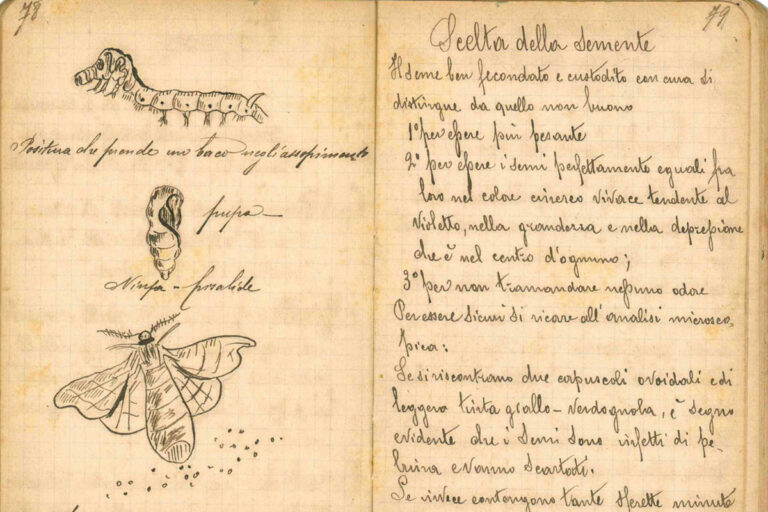 78
Positura che prende un baco negli assopimento
pupa –
Ninfa – crisalide
79
Scelta della Semente
Il seme ben fecondato e custodito con cura si
distingue da quello non buono
1° per essere più pesante
2° per essere i semi perfettamente eguali fra
loro nel colore cinereo vivace tendente al
violetto, nella grandezza e nella depressione
che è nel centro d'ognuno;
3° per non tramandare nessuno odore
Per essere sicuri si ricorre all'analisi microsco,
pica:
Se si riscontrano due corpuscoli ovoidali e di
leggera tinta giallo-verdognola, è segno
evidente che i semi sono infetti di pe-
brina e vanno scartati.
Se invece contengono tante sferette minute